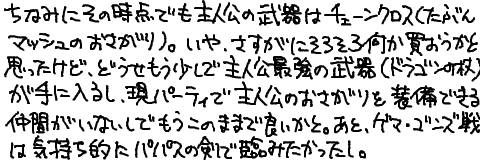 ちなみにその時点でも主人公の武器はチェーンクロス(たぶん
マッシュのおさがり)。いや、さすがにそろそろ何か買おうかと
思ったけど、どうせもう少しで主人公最強の武器(ドラゴンの杖)
が手に入るし、現パーティで主人公のおさがりを装備できる
仲間がいないしでもうこのままで良いかと。あと、ゲマ・ゴンズ戦
は気持ち的にパパスの剣で臨みたかったし。